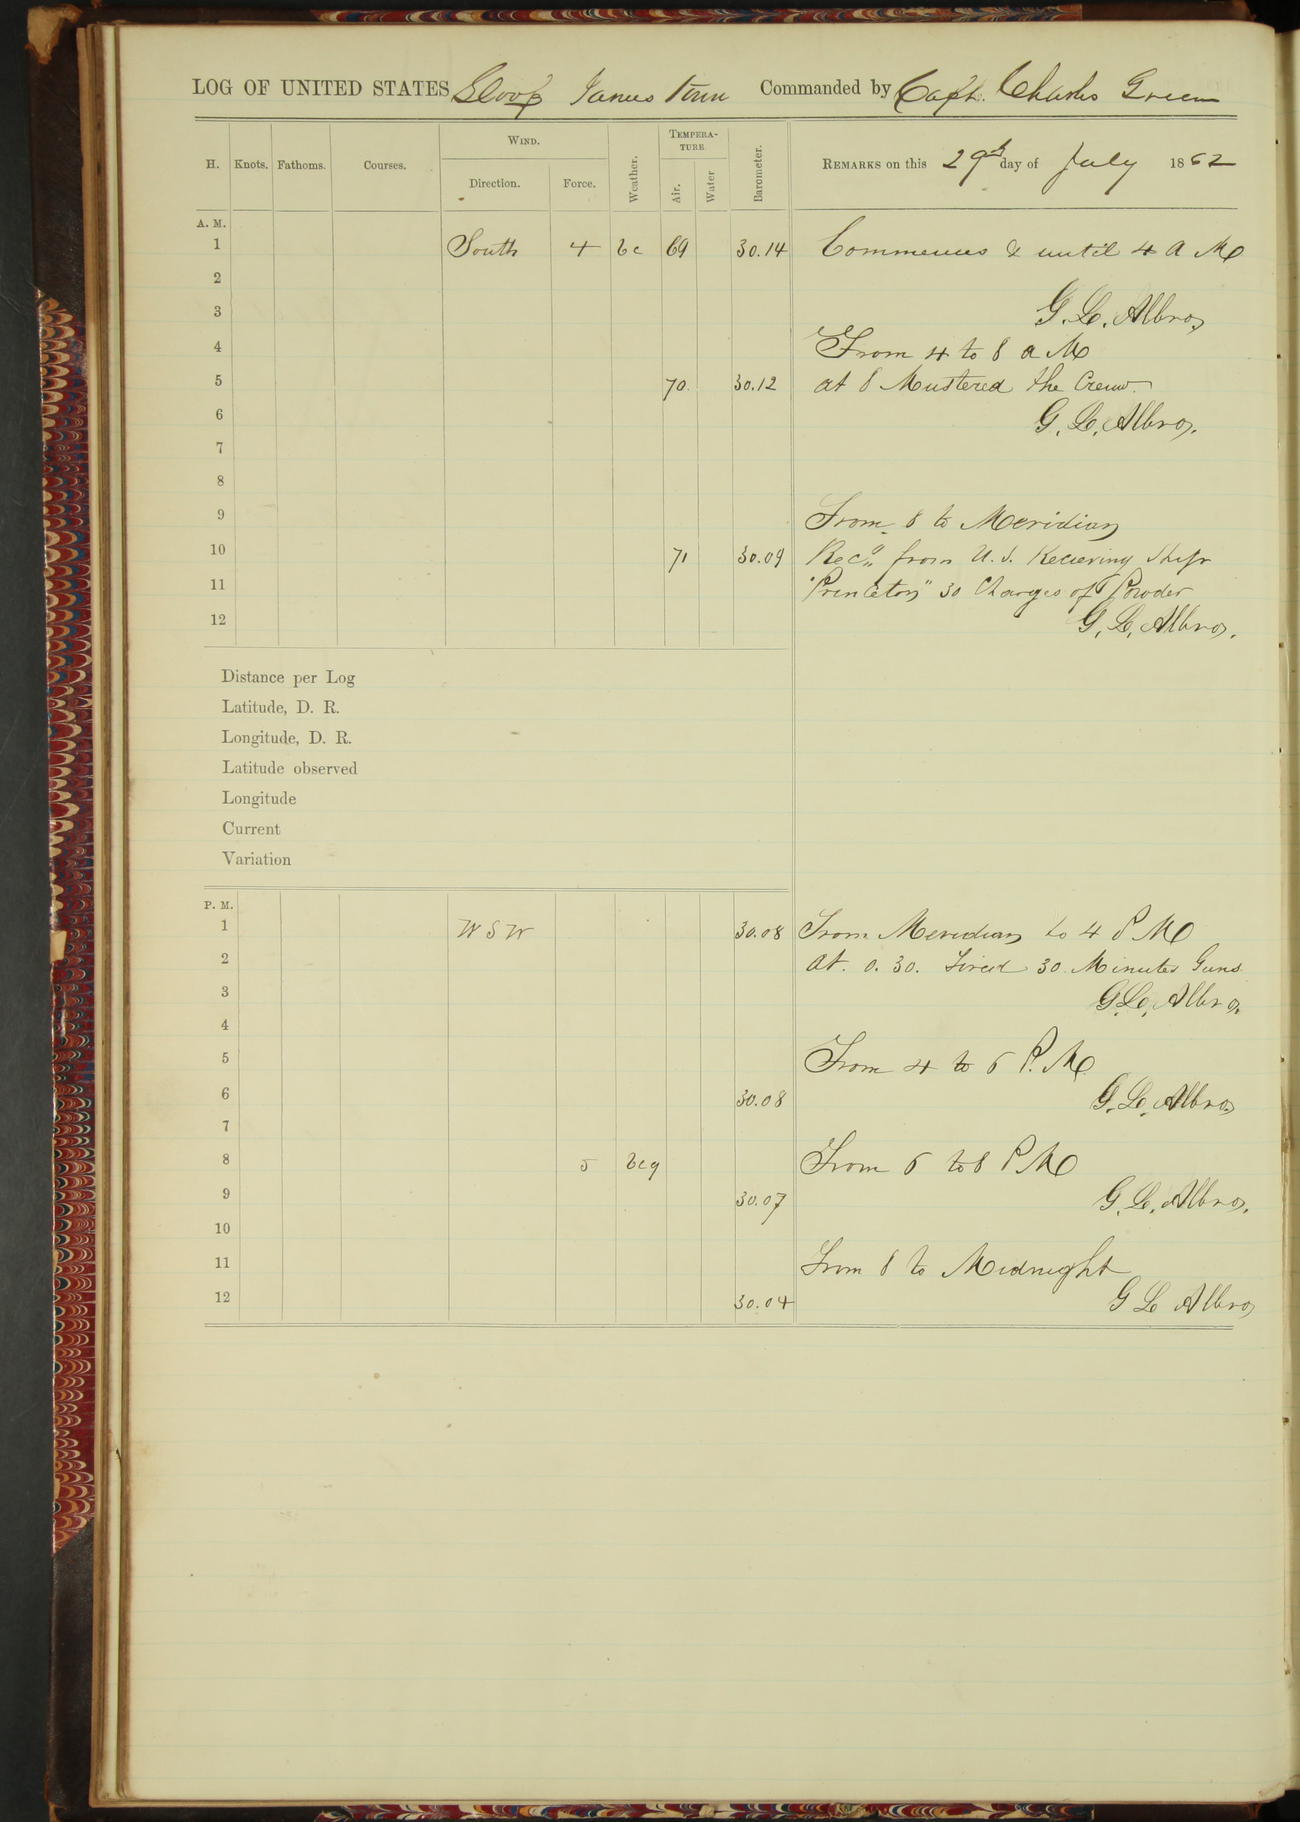 LOG OF UNITED STATES Sloop James Town Commanded by Capt. Charles Green
H. Knots. Fathoms. Courses. WIND. Direction. Force. Weather. TEMPERATURE. Air. Water Barometer. REMARKS on this 29th day of July 1862
A. M.
1 South 4 bc 69 30.14 Commences & until 4 A M
2
3 G. L. Albro,
4 From 4 to 8 a M
5 70 30.12 at 8 Mustered the Crew.
6 G. L. Albro,
7
8
9 From 8 to Meridian
10 71 30.09 Recd from U. S. Recieving Ship
11 "Princeton" 30 Charges of Powder
12 G. L. Albro,
Distance per Log
Latitude, D. R.
Longitude, D. R.
Latitude observed
Longitude
Current
Variation
P. M.
1 W S W 30.08 From Meridian to 4 P M
2 At. 0. 30. Fired 30 Minutes Guns
3 G. L. Albro,
4
5 From 4 to 6 P. M.
6 30.08 G. L. Albro,
7
8 5 bcq From 6 to 8 P M
9 30.07 G. L. Albro,
10
11 From 8 to Midnight
12 30.04 G L Albro,